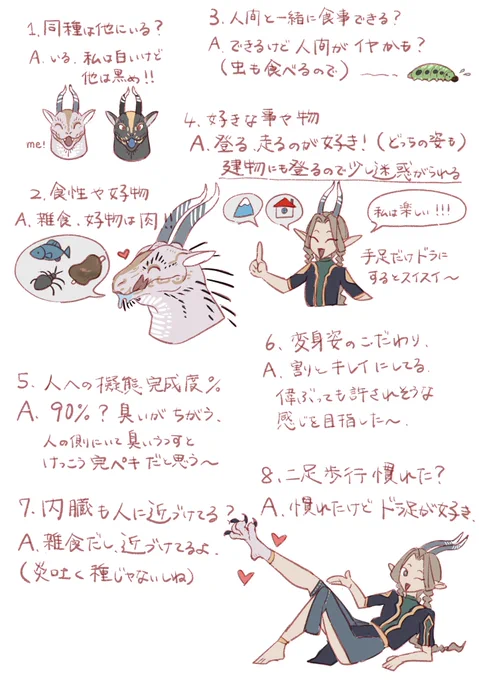 1. 同種は他にいる?
A. いる、私は白いけど
他は黒め!!
me!
2. 食性や好物
A. 雑食、好物は肉!!
3. 人間と一緒に食事できる?
A. できるけど人間がイヤかも?
(虫も食べるので)
4. 好きな事や物
A. 登る、走るのが好き!(どっちの姿も)
建物にも登るので少し迷惑がられる
私は楽しい!!!
手足だけドラに
するとスイスイ〜
5. 人への擬態完成度%
A. 90%?臭いがちがう、
人の側にいて臭いうつすと
けっこう完ペキだと思う〜
6. 変身姿のこだわり、
A. 割とキレイにしてる、
偉ぶっても許されそうな
感じを目指した〜、
7. 内臓も人に近づけてる?
A. 雑食だし、近づけてるよ、
(炎吐く種じゃないしね)
8. 二足歩行慣れた?
A. 慣れたけどドラ足が好き、